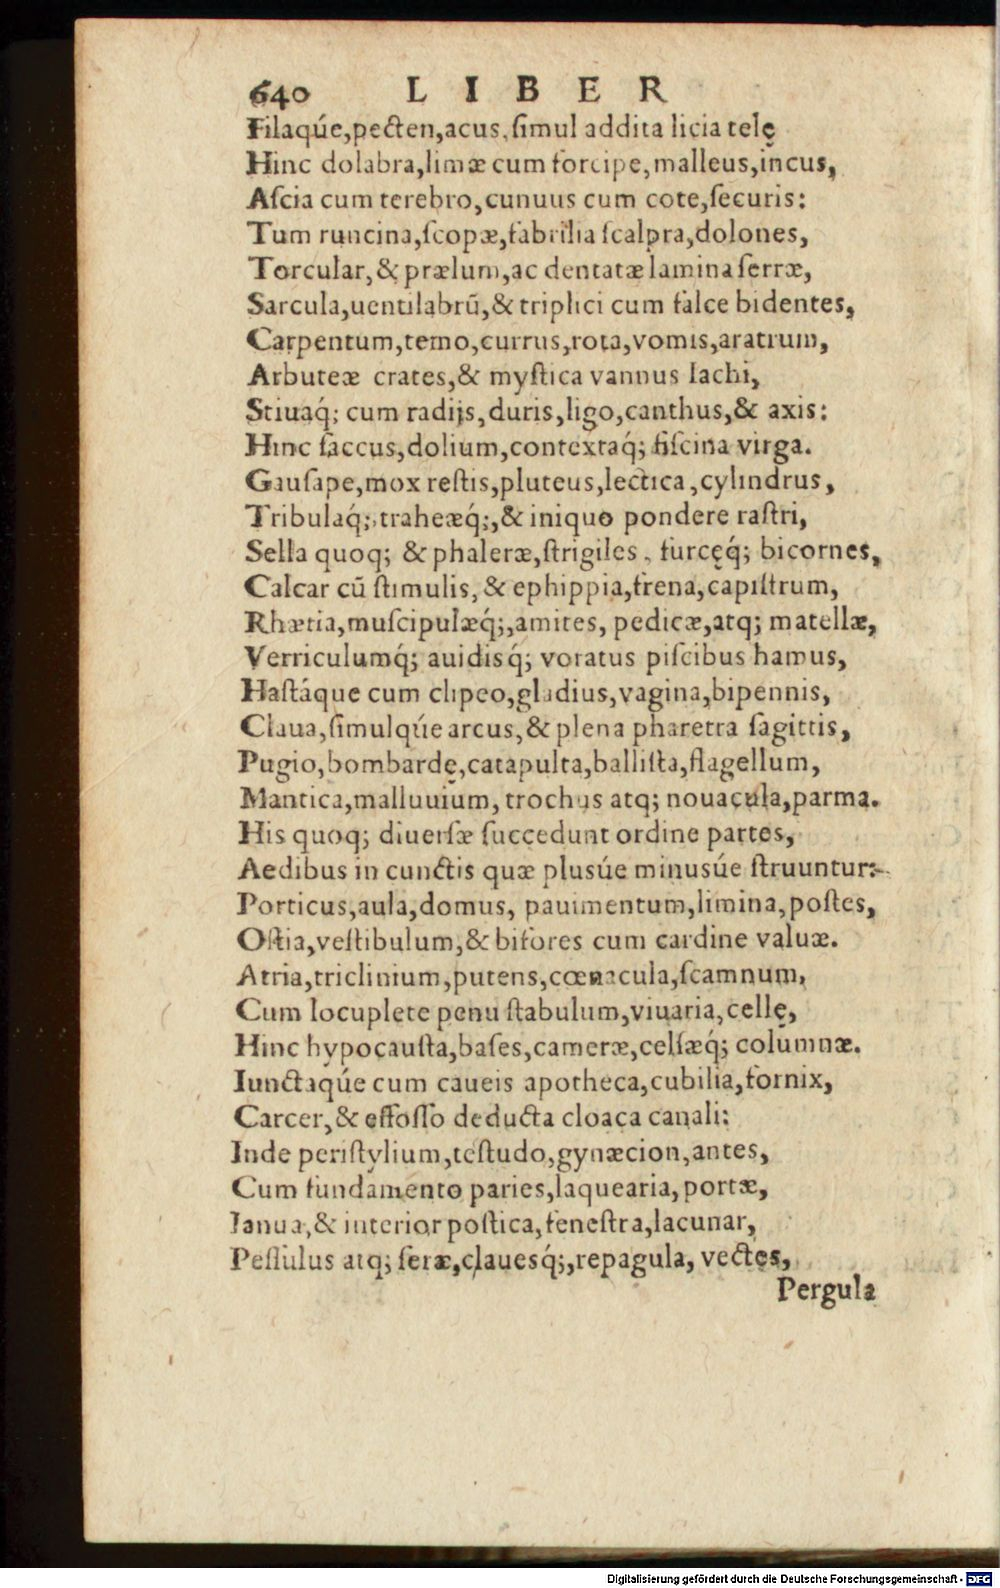 640 LIBER
Filaq́ue,pecten,acus,ſimul addita licia telę
Hinc dolabra,limæ cum forcipe,malleus,incus,
Aſcia cum terebro,cunuus cum cote,ſecuris:
Tum runcina,ſcopæ,fabrilia ſcalpra,dolones,
Torcular,& prælum,ac dentatæ lamina ſerræ,
Sarcula,uentilabrū,& triplici cum falce bidentes,
Carpentum,temo,currus,rota,vomis,aratrum,
Arbuteæ crates,& myſtica vannus Iachi,
Stiuaq́; cum radijs,duris,ligo,canthus,& axis:
Hinc ſaccus,dolium,contextaq́; fiſcina virga.
Gauſape,mox reſtis,pluteus,lectica,cylindrus,
Tribulaq́;,traheæq́;,& iniquo pondere raſtri,
Sella quoq; & phaleræ,ſtrigiles, furcęq́; bicornes,
Calcar cū ſtimulis,& ephippia,frena,capiſtrum,
Rhætia,muſcipulæq́;,amites, pedicæ,atq; matellæ,
Verriculumq́; auidisq́; voratus piſcibus hamus,
Haſtáque cum clipeo,gladius,vagina,bipennis,
Claua,ſimulq́ue arcus,& plena pharetra ſagittis,
Pugio,bombardę,catapulta,balliſta,flagellum,
Mantica,malluuium, trochus atq; nouacula,parma.
His quoq; diuerſæ ſuccedunt ordine partes,
Aedibus in cunctis quæ plusúe minusúe ſtruuntur:
Porticus,aula,domus, pauimentum,limina,poſtes,
Oſtia,veſtibulum,& bifores cum cardine valuæ.
Atria,triclinium,putens,cœnacula,ſcamnum,
Cum locuplete penu ſtabulum,viuaria,cellę,
Hinc hypocauſta,baſes,cameræ,celſæq́; columnæ.
Iunctaq́ue cum caueis apotheca,cubilia,fornix,
Carcer,& effoſſo deducta cloaca canali:
Inde periſtylium,teſtudo,gynæcion,antes,
Cum fundamento paries,laquearia,portæ,
Ianua,& interior poſtica,feneſtra,lacunar,
Peſſulus atq; ſeræ,clauesq́;,repagula, vectes,
Pergula
Digitalisierung gefördert durch die Deutsche Forschungsgemeinschaft - DFG